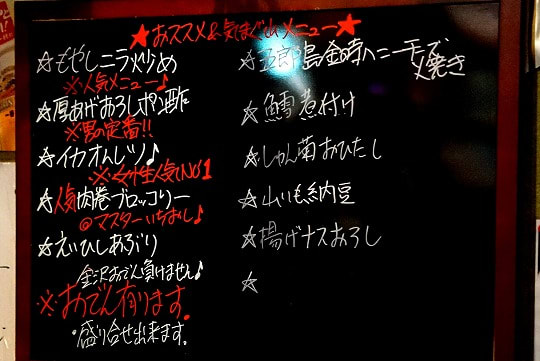 ★おススメ&気まぐれメニュー★
☆もやしニラ炒め
※人気メニュー♪
☆厚あげおろしポン酢
※男の定番!!
☆イカオムレツ♪
※女性人気No1
☆人気肉巻ブロッコリー
◎マスターいちおし♪
☆えいひれあぶり
金沢おでん負けません♪
※おでん有ります。
・盛り合せ出来ます。
☆五郎島金時ハニーチーズ焼き
☆鱈煮付け
☆しゅん菊おひたし
☆山いも納豆
☆揚げナスおろし
☆